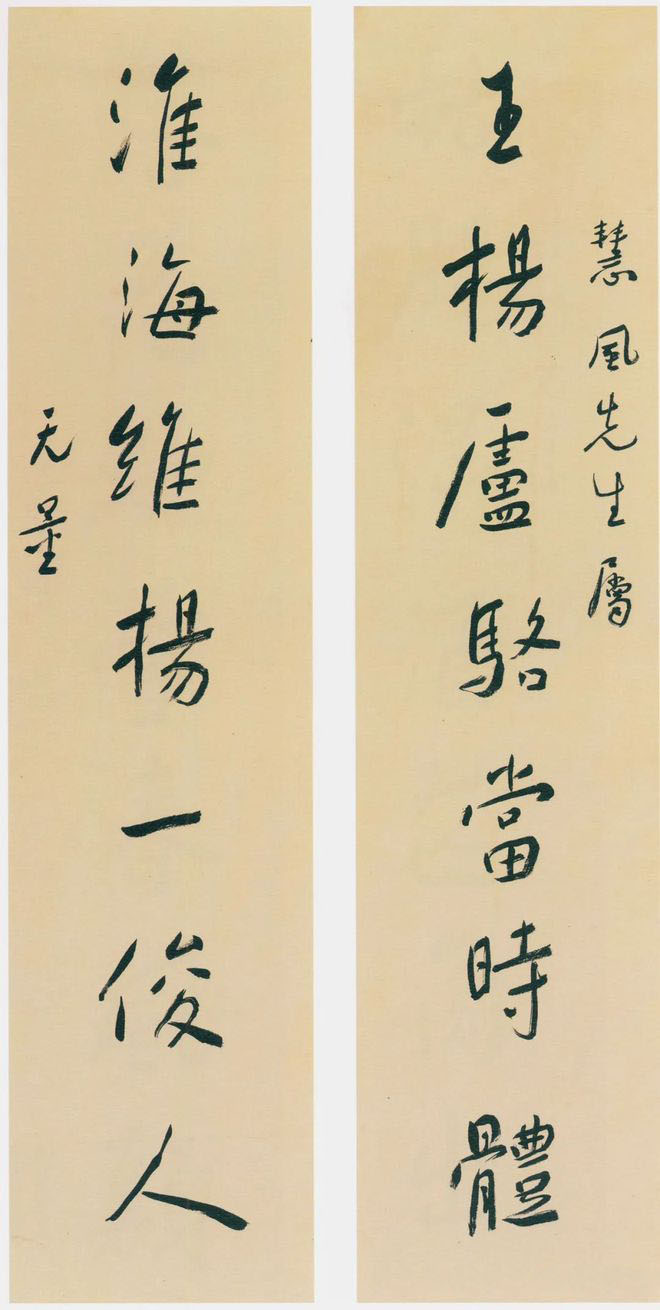 慧風先生屬
王楊盧駱當時體
淮海維楊一俊人
无量